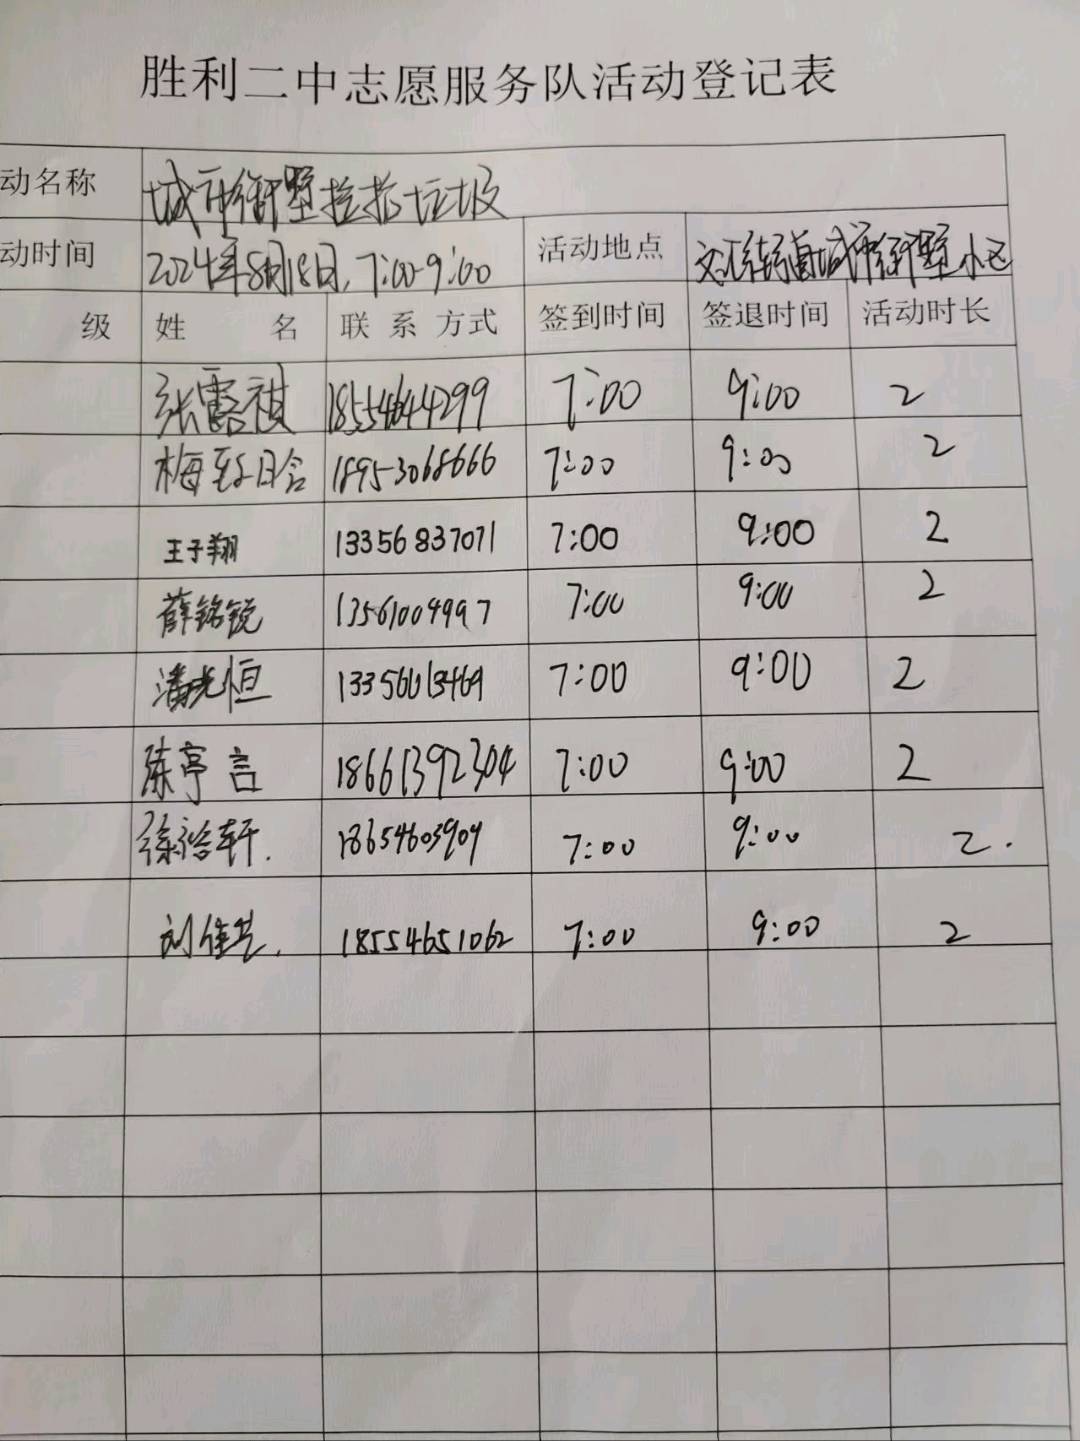 胜利二中志愿服务队活动登记表
动名称 城市街墅捡拾垃圾
动时间 2024年8月18日,7:00-9:00 活动地点 文汇街道城市街墅小区
级 姓名 联系方式 签到时间 签退时间 活动时长
张露祺 18554644299 7:00 9:00 2
梅 18953068666 7:00 9:00 2
王子翔 13356837071 7:00 9:00 2
薛铭锐 13561004997 7:00 9:00 2
潘光恒 13356613469 7:00 9:00 2
陈亭言 18661392304 7:00 9:00 2
徐浩轩. 18654603909 7:00 9:00 2.
刘佳艺. 18554651062 7:00 9:00 2